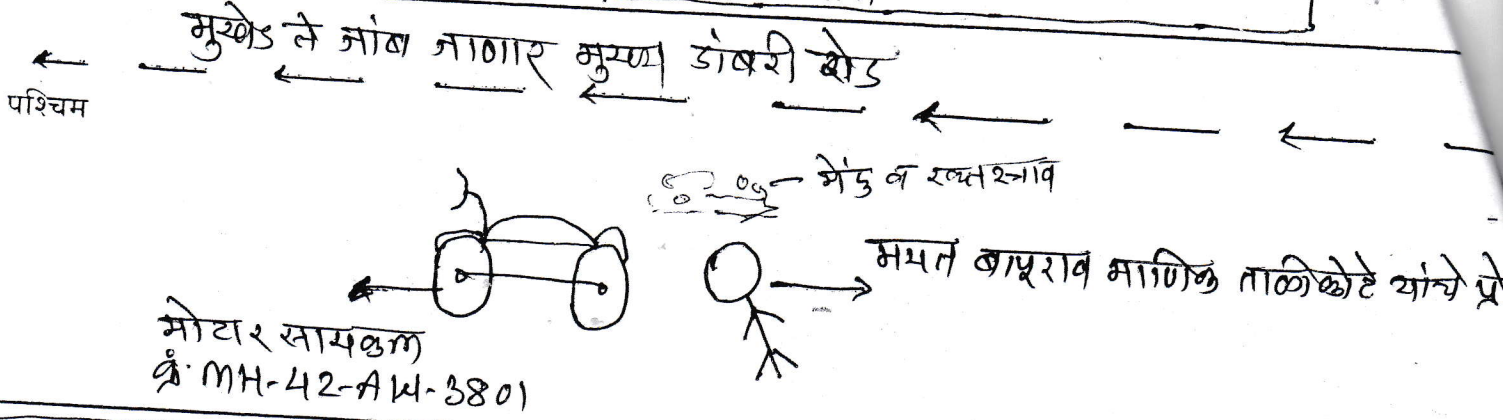 मुखेड ते जांब जाणार मुख्य डांबरी रोड
पश्चिम
मेंदु व रक्तस्त्राव
मयत बापूराव माणिक ताळीकोटे यांचे प्रे
मोटार सायकल
क्रं. MH-42-AW-3801